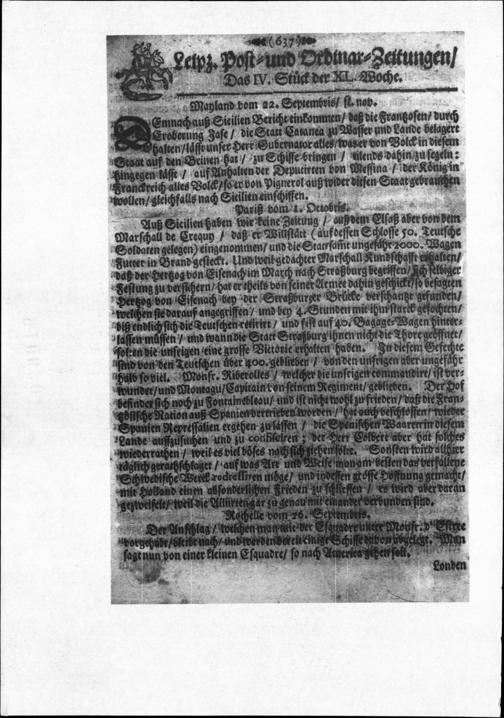 (637)
Leipz. Post- und Ordinar-Zeitungen/
Das IV. Stück der XL. Woche.
Mayland vom 22. Septembris/ st. nov.
Demnach auß Sicilien Bericht einkommen/ daß die Frantzosen/ durch
Eroberung Jase/ die Statt Catanea zu Wasser und Lande belagert
halten/ lässt unser Herr Gubernator alles/ was er von Volck in diesem
Staat auf den Beinen hat/ zu Schiffe bringen/ eilends dahin zu segeln:
hingegen lässt/ auf Anhalten der Deputirten von Messina/ der König in
Franckreich alles Volck/ so er von Pignerol auß wider diesen Staat gebrauchen
wollen/ gleichfalls nach Sicilien einschiffen.
Pariß vom 1. Octobris.
Auß Sicilien haben wir keine Zeitung/ auß dem Elsaß aber von dem
Marschall de Crequy/ daß er Willstätt (auf dessen Schlosse 50. Teutsche
Soldaten gelegen) eingenommen/ und die Stat samt ungefähr 2000. Wagen
Futter in Brand gesteckt. Und weil gedachter Marschall Kundschafft erhalten/
daß der Hertzog von Eisenach im March nach Straßburg begriffen/ sich selbiger
Festung zu versichern/ hat er theils von seiner Armee dahin geschickt/ so besagten
Hertzog von Eisenach bey der Straßburger Brücke verschantzt gefunden/
welchen sie darauf angegriffen/ und bey 4. Stunden mit ihm starck gefochten/
biß endlich sich die Teutschen retirirt/ und fast auf 40. Bagage-Wagen hinter-
lassen müssen/ und wann die Statt Straßburg ihnen nicht die Thore geöffnet/
solten die unsrigen eine grosse Victorie erhalten haben. In diesem Gefechte
sind von den Teutschen über 400. geblieben/ von den unsrigen aber ungefähr
halb so viel. Monsr. Riberolles/ welcher die unsrigen commandirt/ ist ver-
wundet/ und Montagu/ Capitain von seinem Regiment/ geblieben. Der Hof
befindet sich noch zu Fontainebleau/ und ist nicht wohl zu frieden/ daß die Fran-
tzösische Nation auß Spanien vertrieben worden/ hat auch beschlossen/ wieder
Spanien Repressalien ergehen zu lassen/ die Spanischen Waaren in diesem
Lande aufzusuchen und zu confisciren; der Herr Colbert aber hat solches
wiederrathen/ weil es viel böses nach sich ziehen solte. Sonsten wird allhier
täglich gerathschlaget/ auf was Art und Weise man am besten das verfallene
Schwedische Werck redressiren möge/ und indessen grosse Hoffnung gemacht/
mit Holland einen absonderlichen Frieden zu schliessen/ es wird aber daran
gezweifelt/ weil die Alliirten gar zu genau mit einander verbunden sind.
Rochelle vom 26. Septembris.
Der Anschlag/ welchen man mit der Esquadre unter Monsr. d' Estree
vorgehabt/ bleibt nach/ und werden bereit einige Schiffe davon abgelegt. Man
sagt nun von einer kleinen Esquadre/ so nach America gehen soll.
Londen